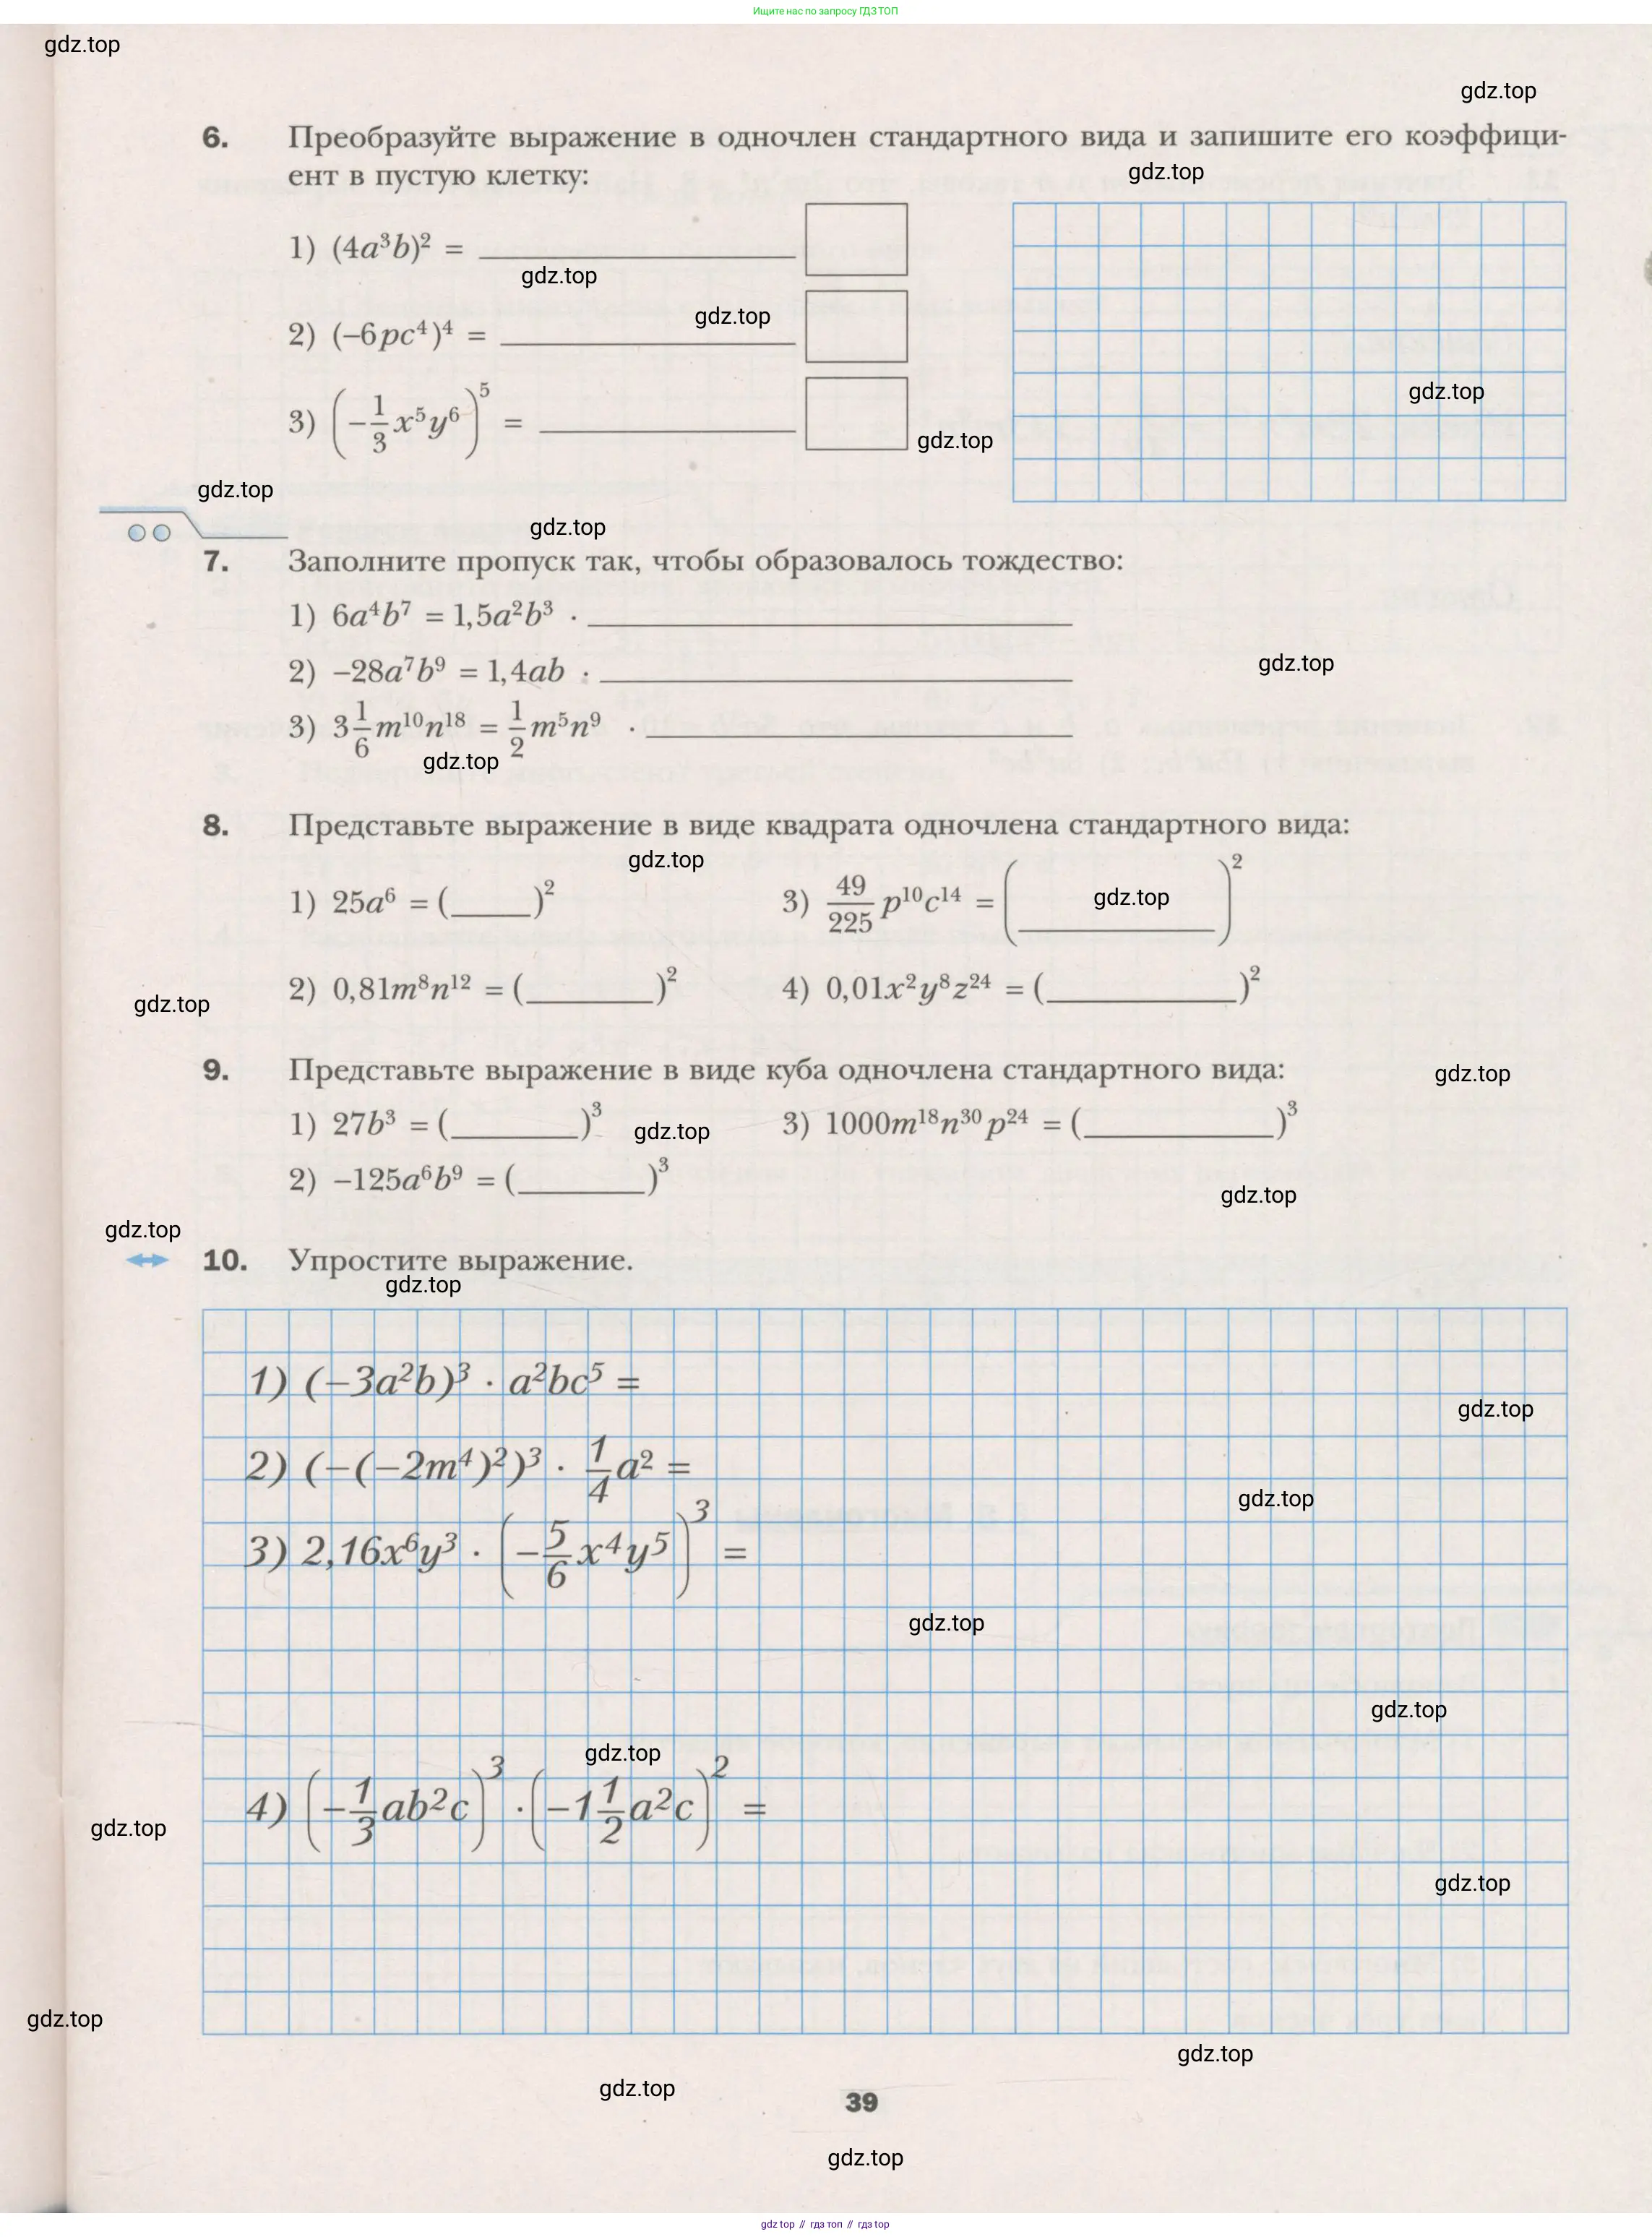 Ищите нас по запросу ГДЗ ТОП
gdz.top
gdz.top
6. Преобразуйте выражение в одночлен стандартного вида и запишите его коэффици-
ент в пустую клетку:
gdz.top
1) (4a³b)² =
gdz.top
gdz.top
2) (–6pc⁴)⁴ =
gdz.top
3) (–1/3 x⁵y⁶)⁵ =
gdz.top
gdz.top
gdz.top
7. Заполните пропуск так, чтобы образовалось тождество:
1) 6a⁴b⁷ = 1,5a²b³ ·
2) –28a⁷b⁹ = 1,4ab ·
gdz.top
3) 3 1/6 m¹⁰n¹⁸ = 1/2 m⁵n⁹ ·
gdz.top
8. Представьте выражение в виде квадрата одночлена стандартного вида:
gdz.top
1) 25a⁶ = (_____)² 3) 49/225 p¹⁰c¹⁴ = (_____)²
gdz.top
2) 0,81m⁸n¹² = (_____)² 4) 0,01x²y⁸z²⁴ = (_____)²
gdz.top
9. Представьте выражение в виде куба одночлена стандартного вида:
gdz.top
1) 27b³ = (_____)³ gdz.top 3) 1000m¹⁸n³⁰p²⁴ = (_____)³
2) –125a⁶b⁹ = (_____)³
gdz.top
gdz.top
10. Упростите выражение.
gdz.top
1) (–3a²b)³ · a²bc⁵ =
gdz.top
2) (–(–2m⁴)²)³ · 1/4 a² =
gdz.top
3) 2,16x⁶y³ · (–5/6 x⁴y⁵)³ =
gdz.top
gdz.top
gdz.top
4) (–1/3 ab²c)³ · (–1 1/2 a²c)² =
gdz.top
gdz.top
gdz.top
gdz.top
gdz.top
39
gdz.top
gdz top // гдз топ // гдз top